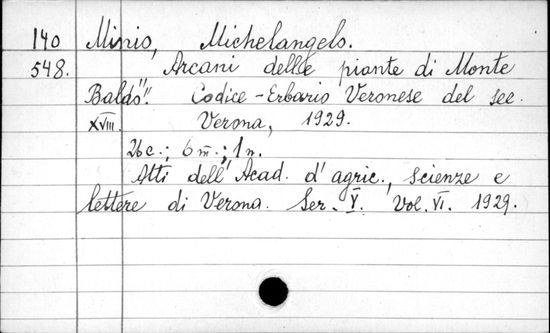 140 Minio, Michelangelo.
548. "Arcani delle piante di Monte
Baldo". Codice-Erbario Veronese del sec.
XVIII. Verona, 1929.
Atti dell'Acad. d'agric., scienze e
lettere di Verona. Ser. V. Vol. VI. 1929.